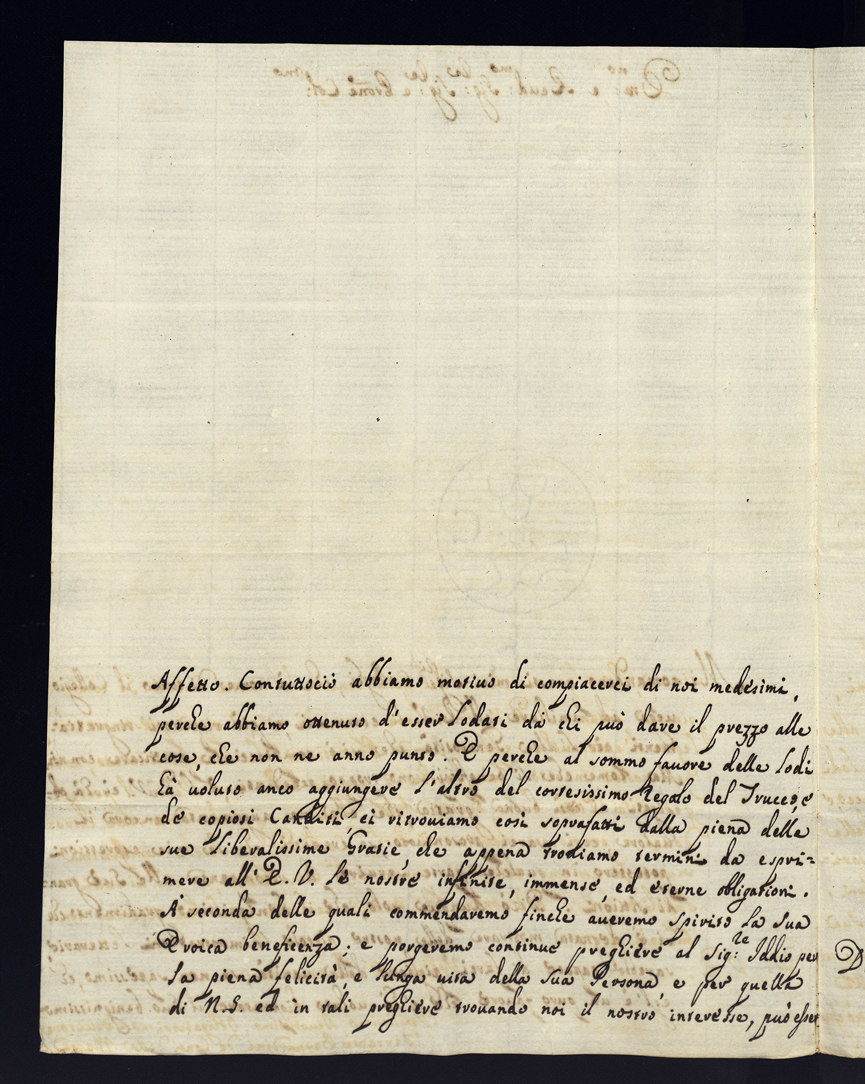 Affetto. Contuttociò abbiamo motivo di compiacerci di noi medesimi,
perche abbiamo ottenuto d'esser lodati da chi può dare il prezzo alle
cose, che non ne anno punto. E perche al sommo favore delle lodi
hà voluto anco aggiungere l'altro del cortesissimo Regalo del
de copiosi Canditi, ci ritroviamo così soprafatti dalla piena delle
sue liberalissime Gratie, che appena troviamo termini da espri=
mere all'E. V. le nostre infinite, immense, ed eterne obligationi.
A' seconda delle quali commendaremo finche averemo spirito la sua
Eroica beneficenza; e porgeremo continue pregliere al Sig.re Iddio per
la piena felicità, e lunga vita della sua Persona, e per quella
di N.S. ed in tali pregliere trovando noi il nostro interesse, può esser